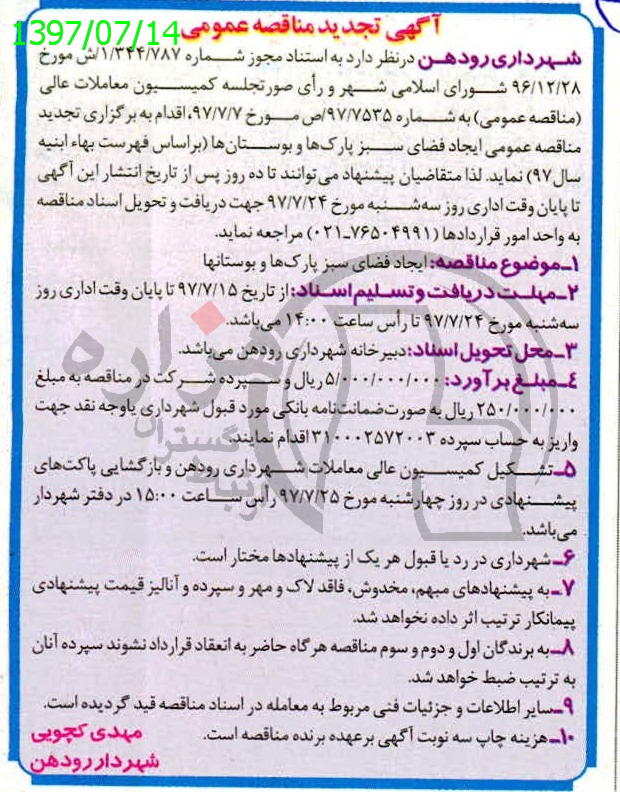 آگهی تجدید مناقصه عمومی
1397/07/14
شهرداری رودهن درنظر دارد به استناد مجوز شماره ۱/۳۴۴/۷۸۷/ش مورخ
۹۶/۱۲/۲۸ شورای اسلامی شهر و رأی صورتجلسه کمیسیون معاملات عالی
(مناقصه عمومی) به شماره ۹۷/۷۵۳۵/ص مورخ ۹۷/۷/۷، اقدام به برگزاری تجدید
مناقصه عمومی ایجاد فضای سبز پارک‌ها و بوستان‌ها (براساس فهرست بهاء ابنیه
سال ۹۷) نماید. لذا متقاضیان پیشنهاد می‌توانند تا ده روز پس از تاریخ انتشار این آگهی
تا پایان وقت اداری روز سه‌شنبه مورخ ۹۷/۷/۲۴ جهت دریافت و تحویل اسناد مناقصه
به واحد امور قراردادها (۷۶۵۰۴۹۹۱-۰۲۱) مراجعه نماید.
۱ـ موضوع مناقصه: ایجاد فضای سبز پارک‌ها و بوستانها
۲ـ مهلت دریافت و تسلیم اسناد: از تاریخ ۹۷/۷/۱۵ تا پایان وقت اداری روز
سه‌شنبه مورخ ۹۷/۷/۲۴ تا رأس ساعت ۱۴:۰۰ می‌باشد.
۳ـ محل تحویل اسناد: دبیرخانه شهرداری رودهن می‌باشد.
٤ـ مبلغ برآورد: ۵/۰۰۰/۰۰۰/۰۰۰ ریال و سپرده شرکت در مناقصه به مبلغ
۲۵۰/۰۰۰/۰۰۰ ریال به صورت ضمانت‌نامه بانکی مورد قبول شهرداری یا وجه نقد جهت
واریز به حساب سپرده ۳۱۰۰۰۲۵۷۲۰۰۳ اقدام نمایند.
۵ـ تشکیل کمیسیون عالی معاملات شهرداری رودهن و بازگشایی پاکت‌های
پیشنهادی در روز چهارشنبه مورخ ۹۷/۷/۲۵ رأس ساعت ۱۵:۰۰ در دفتر شهردار
می‌باشد.
۶ـ شهرداری در رد یا قبول هر یک از پیشنهادها مختار است.
۷ـ به پیشنهادهای مبهم، مخدوش، فاقد لاک و مهر و سپرده و آنالیز قیمت پیشنهادی
پیمانکار ترتیب اثر داده نخواهد شد.
۸ـ به برندگان اول و دوم و سوم مناقصه هرگاه حاضر به انعقاد قرارداد نشوند سپرده آنان
به ترتیب ضبط خواهد شد.
۹ـ سایر اطلاعات و جزئیات فنی مربوط به معامله در اسناد مناقصه قید گردیده است.
۱۰ـ هزینه چاپ سه نوبت آگهی برعهده برنده مناقصه است.
مهدی کچویی
شهردار رودهن